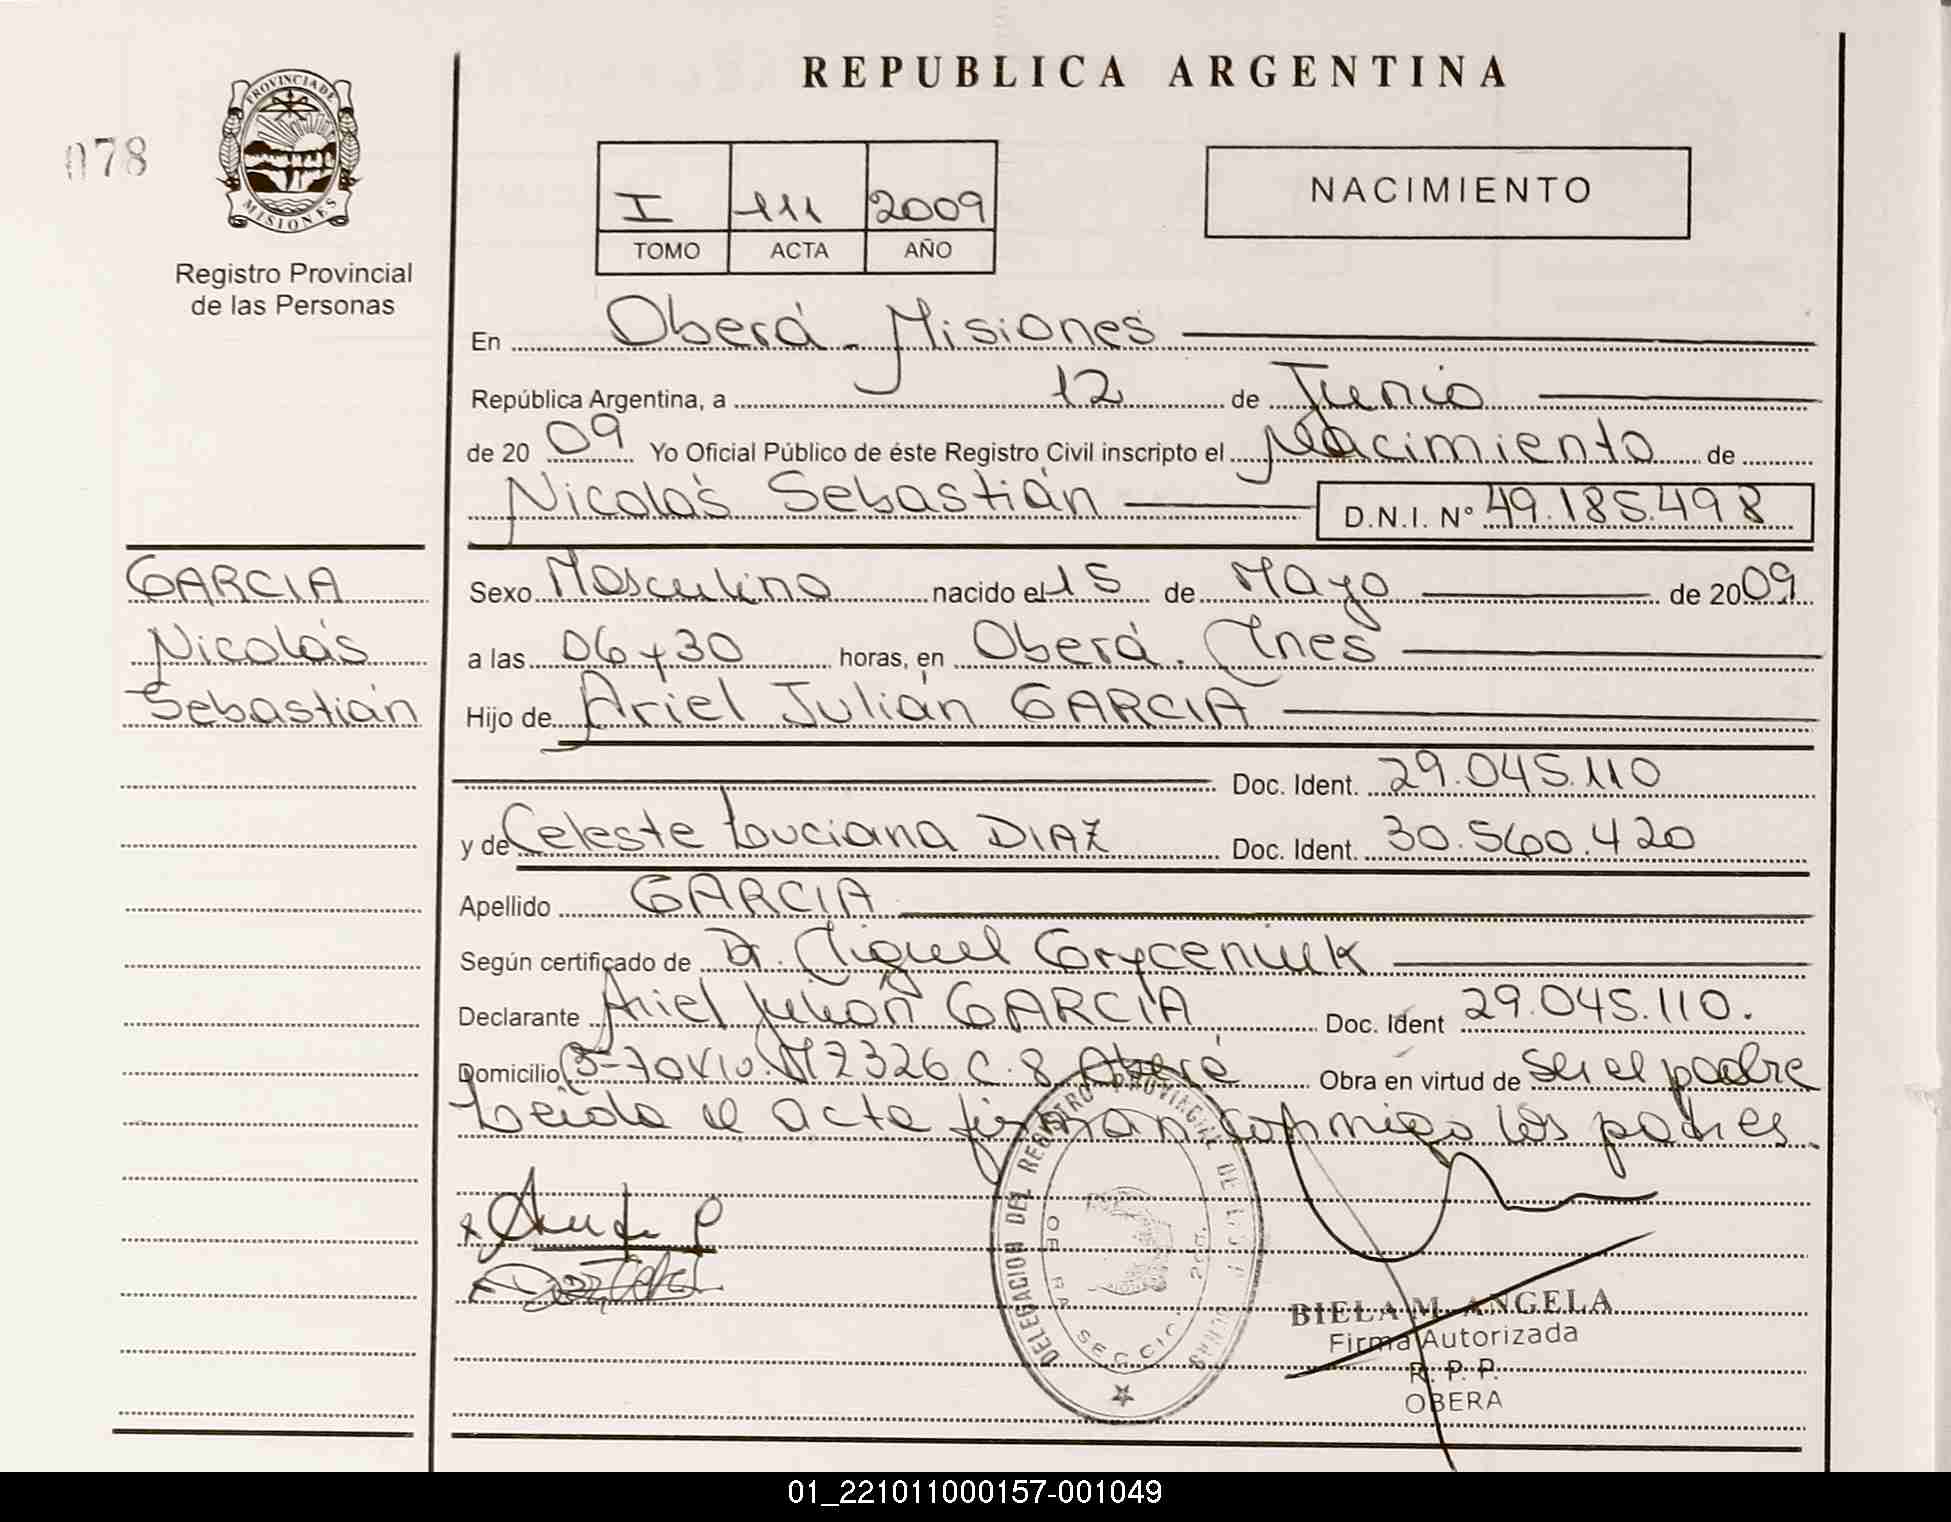 REPUBLICA ARGENTINA
078
PROVINCIA DE
MISIONES
Registro Provincial
de las Personas
I 111 2009
TOMO ACTA AÑO
NACIMIENTO
En Oberá - Misiones
República Argentina, a 12 de Junio
de 2009 Yo Oficial Público de éste Registro Civil inscripto el Nacimiento de
Nicolás Sebastián D.N.I. N° 49.185.498
GARCIA
Nicolás
Sebastián
Sexo Masculino nacido el 15 de Mayo de 2009
a las 06 y 30 horas, en Oberá. Mnes
Hijo de Ariel Julián GARCIA
Doc. Ident. 29.045.110
y de Celeste Luciana DIAZ Doc. Ident. 30.560.420
Apellido GARCIA
Según certificado de Dr. Miguel Gryceniuk
Declarante Ariel Julián GARCIA Doc. Ident 29.045.110.
Domicilio Mz 326 C. 8 Oberá Obra en virtud de ser el padre
Leída el acta firman conmigo los padres.
DELEGACION DEL REGISTRO PROVINCIAL DE
BIELA M. ANGELA
Firma Autorizada
R. P. P.
OBERA
01_221011000157-001049